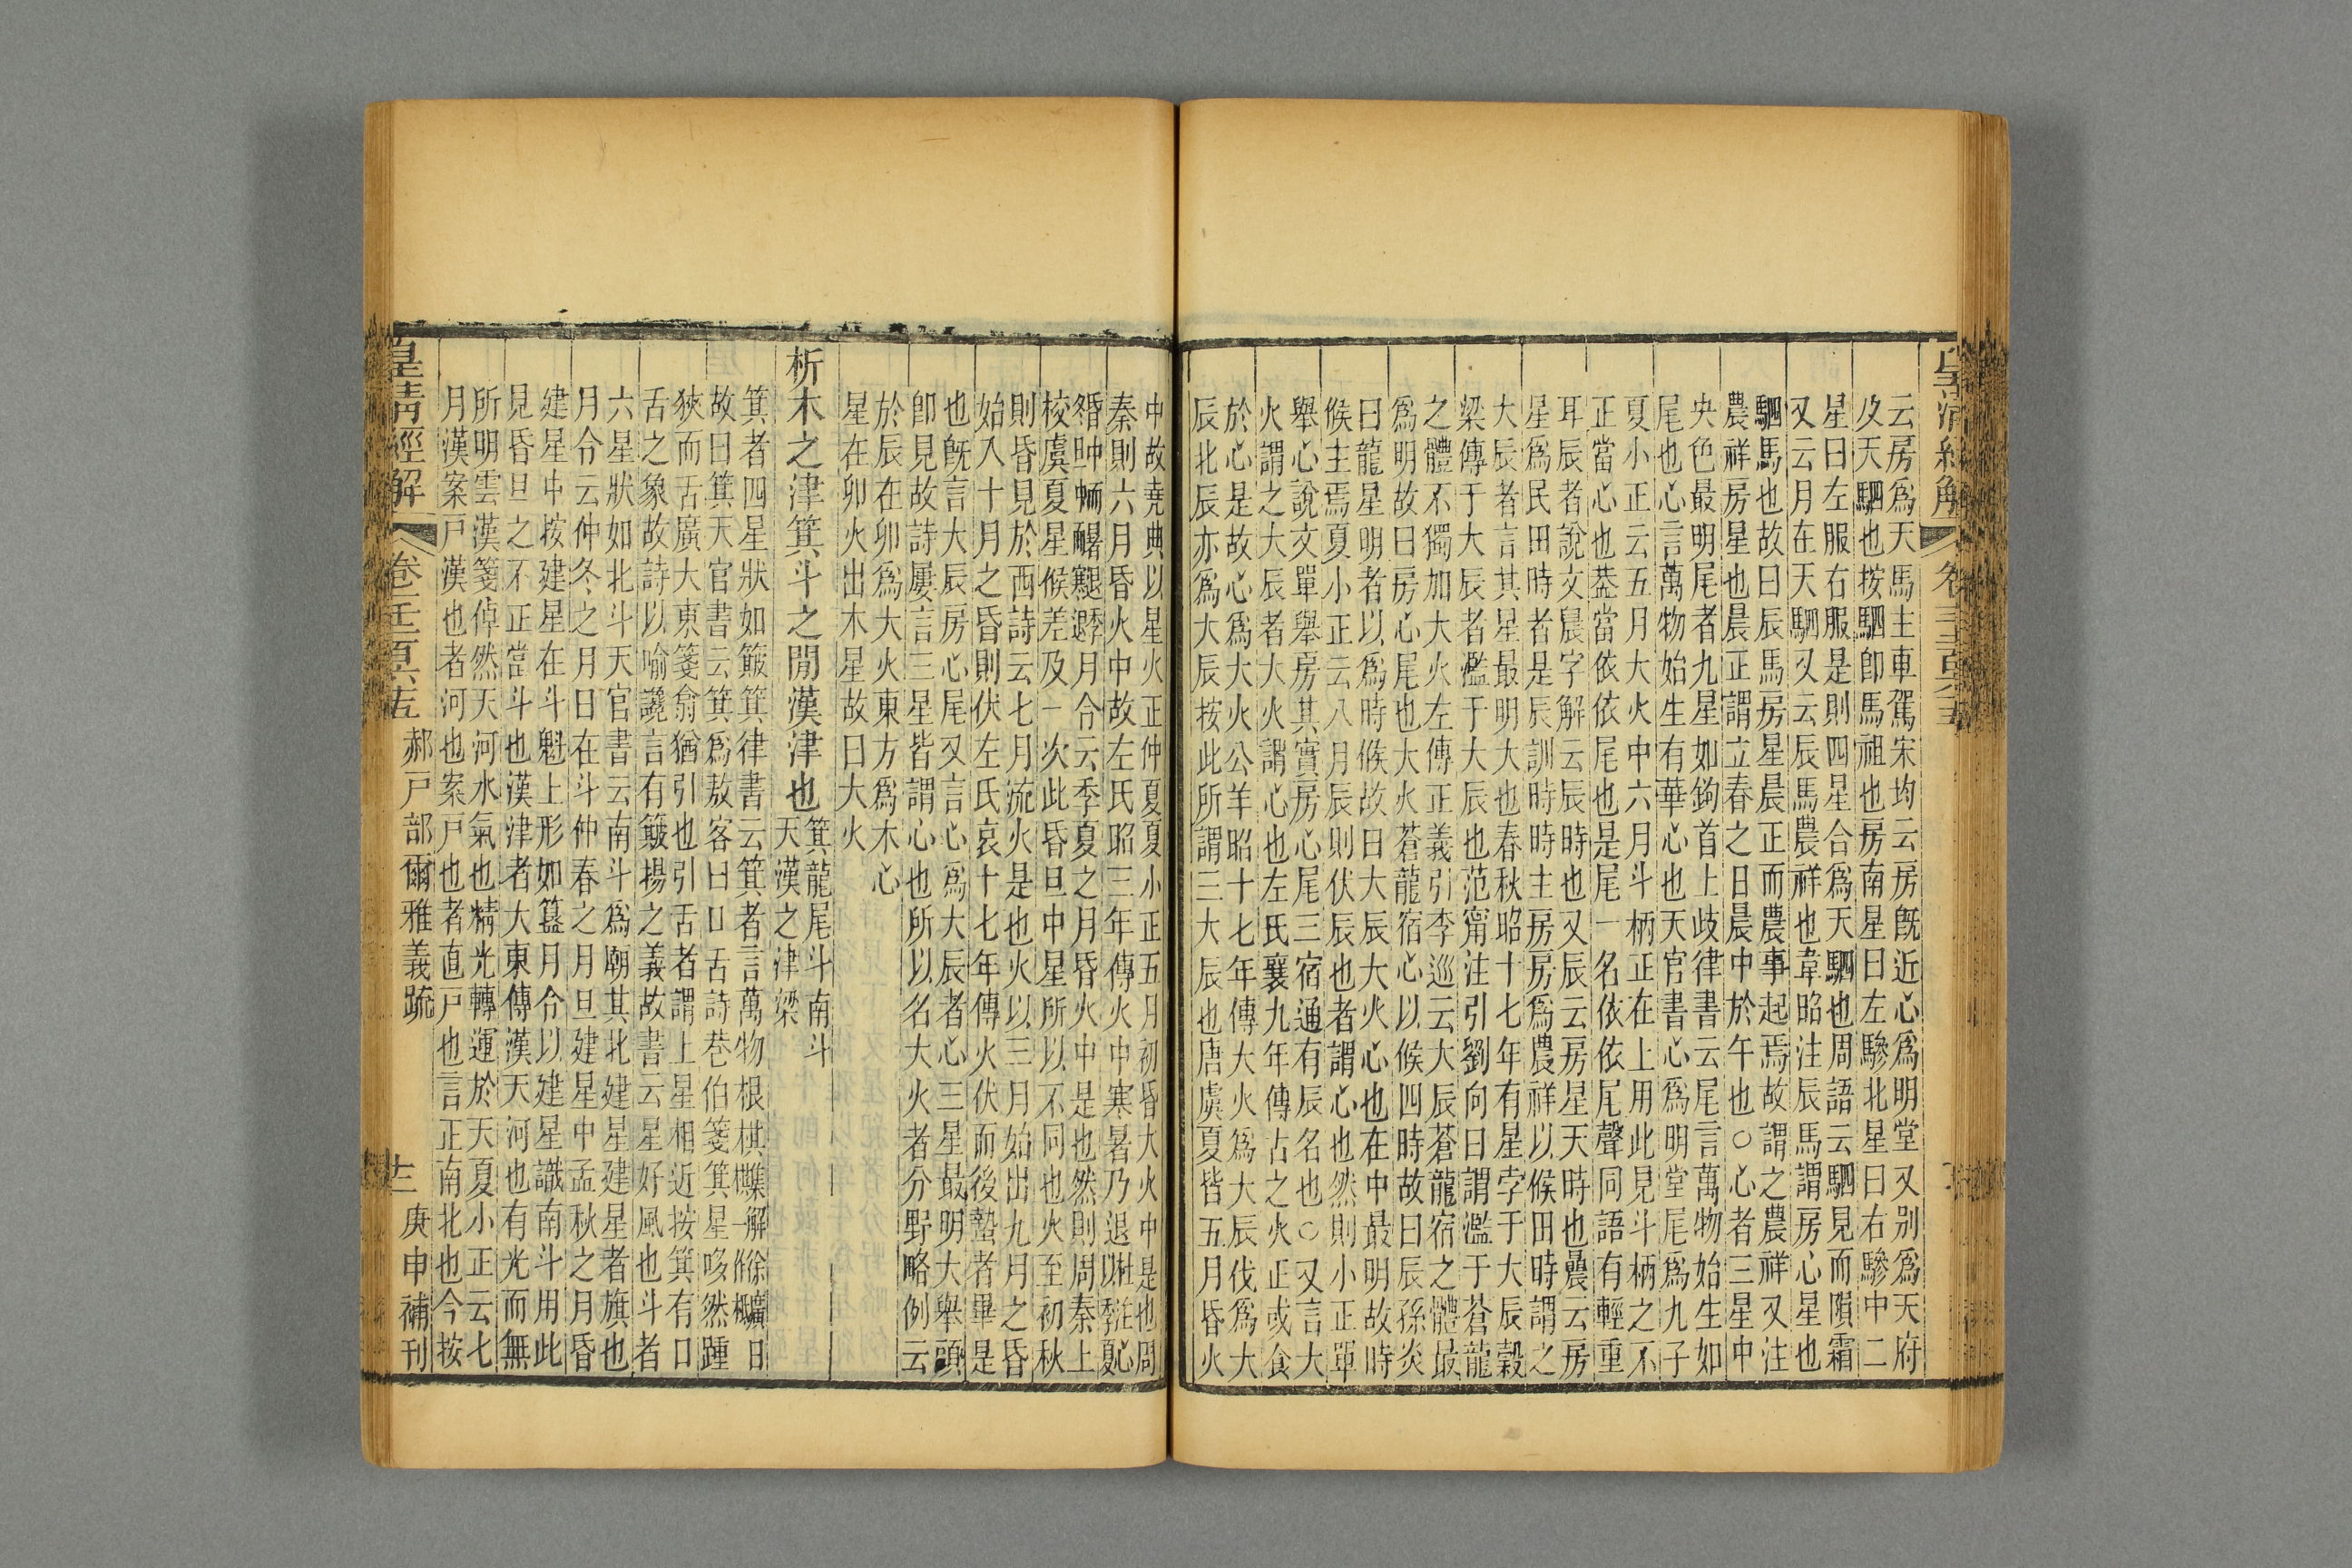 皇清經解
云房爲天馬主車駕宋均云房旣近心爲明堂又別爲天府
及天駟也按駟卽馬祖也房南星曰左驂北星曰右驂中二
星曰左服右服是則四星合爲天駟也周語云駟見而隕霜
又云月在天駟又云辰馬農祥也韋昭注辰馬謂房心星也
駟馬也故曰辰馬房星晨正而農事起焉故謂之農祥又注
農祥房星也晨正謂立春之日晨中於午也○心者三星中
央色最明尾者九星如鉤首上歧律書云尾言萬物始生如
尾也心言萬物始生有華心也天官書心爲明堂尾爲九子
夏小正云五月大火中六月斗柄正在上用此見斗柄之不
正當心也蓋當依依尾也是尾一名依依尾聲同語有輕重
耳辰者說文晨字解云辰時也又辰云房星天時也農云房
星爲民田時者是辰訓時時主房房爲農祥以候田時謂之
大辰者言其星最明大也春秋昭十七年有星孛于大辰穀
梁傳于大辰者濫于大辰也范甯注引劉向曰謂濫于蒼龍
之體不獨加大火左傳正義引李巡云大辰蒼龍宿之體最
爲明故曰房心尾也大火蒼龍宿心以候四時故曰辰孫炎
曰龍星明者以爲時候故曰大辰大火心也在中最明故時
候主焉夏小正云八月辰則伏辰也者謂心也然則小正單
舉心說文單舉房其實房心尾三宿通有辰名也○又言大
火謂之大辰者大火謂心也左氏襄九年傳古之火正或食
於心是故心爲大火公羊昭十七年傳大火爲大辰伐爲大
辰北辰亦爲大辰按此所謂三大辰也唐虞夏皆五月昏火
中故堯典以星火正仲夏夏小正五月初昏大火中是也周
秦則六月昏火中故左氏昭三年傳火中寒暑乃退
月令云季夏之月昏火中是也然則周秦上
校虞夏星候差及一次此昏旦中星所以不同也火至初秋
則昏見於西詩云七月流火是也火以三月始出九月之昏
始入十月之昏則伏左氏哀十七年傳火伏而後蟄者畢是
也旣言大辰房心尾又言心爲大辰者心三星最明大舉頭
卽見故詩屢言三星皆謂心也所以名大火者分野略例云
於辰在卯爲大火東方爲木心
星在卯火出木星故曰大火
析木之津箕斗之閒漢津也
箕龍尾斗南斗
天漢之津梁
箕者四星狀如簸箕律書云箕者言萬物根棋
故曰箕天官書云箕爲敖客曰口舌詩巷伯箋箕星哆然踵
狹而舌廣大東箋翕猶引也引舌者謂上星相近按箕有口
舌之象故詩以喻讒言有簸揚之義故書云星好風也斗者
六星狀如北斗天官書云南斗爲廟其北建星建星者旗也
月令云仲冬之月日在斗仲春之月旦建星中孟秋之月昏
建星中按建星在斗魁上形如簋月令以建星識南斗用此
見昏旦之不正當斗也漢津者大東傳漢天河也有光而無
所明雲漢箋倬然天河水氣也精光轉運於天夏小正云七
月漢案戸漢也者河也案戸也者直戸也言正南北也今按
皇清經解
卷一千二百六十五
郝戸部爾雅義疏
庚申補刊